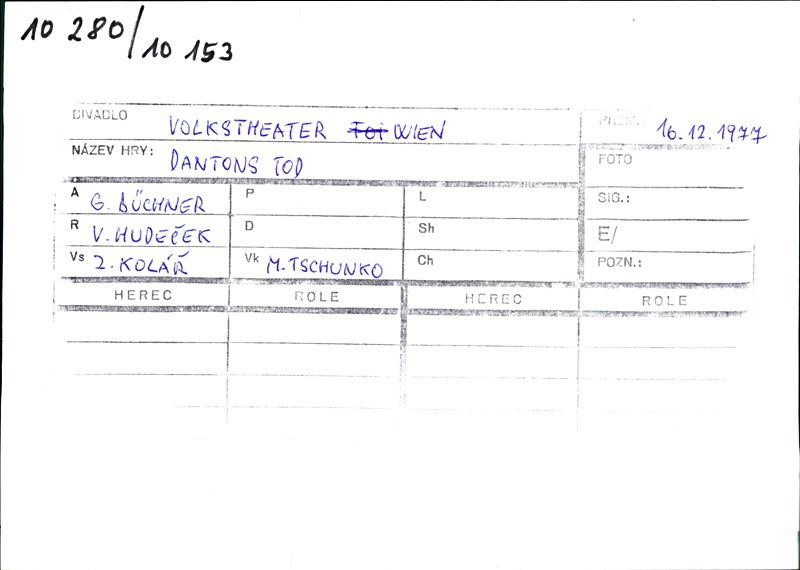 10 280/10 153
DIVADLO VOLKSTHEATER WIEN 16.12.1977
NÁZEV HRY: DANTONS TOD FOTO
A G. BÜCHNER P L SIG.:
R V. HUDEČEK D Sh E/
Vs Z. KOLÁŘ Vk M. TSCHUNKO Ch POZN.:
HEREC ROLE HEREC ROLE